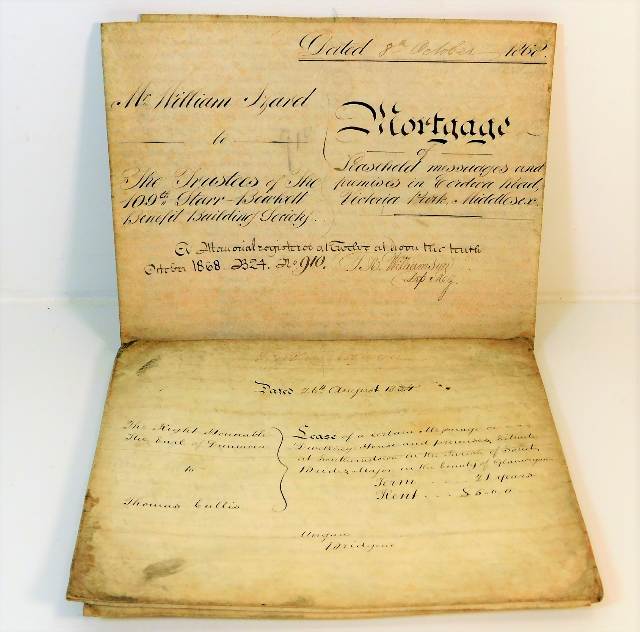 Dated 8th October 1868.
Mr. William Izard
to
The Trustees of The
109th Starr-Bowkett
Benefit Building Society.
Mortgage
of
Leasehold messuages and
premises in Cordova Road,
Victoria Park, Middlesex.
A Memorial registered at Twelve at noon the tenth
October 1868 B24. No 910.
Dep Reg.
Dated 26th August 1834
The Right Honorable
The Earl of Dunraven
to
Thomas Cullis
Lease of a certain Messuage or
Dwelling House and premises situate
at Southerndown in the Parish of Saint
Brides Major in the County of Glamorgan
Term 21 years
Rent £5.0.0